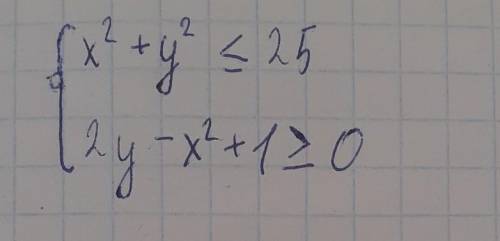 x² + y² ≤ 25
2y - x² + 1 ≥ 0